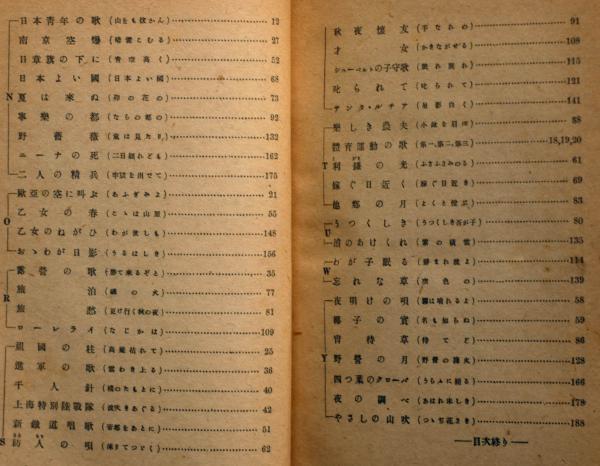 日本青年の歌(山をも抜かん) 12
南京空爆(暗雲こむる) 27
日章旗の下に(青空高く) 52
日本よい國(日本よい國) 68
N
夏は來ぬ(卯の花の) 73
寧樂の都(ならの都の) 92
野薔薇(童は見たり) 132
ニーナの死(三日経れども) 162
二人の精兵 175
歐亞の空に叫ぶ(あふぎみよ) 21
O
乙女の春(とゝは山里) 55
乙女のねがひ(わが世しも) 148
おゝわが日影(うるはしき) 156
露營の歌(勝て來るぞと) 35
旅泊(磯の火) 77
R
旅愁(更け行く秋の夜) 81
ローレライ(なじかは) 109
祖國の柱 25
進軍の歌(雲わき上る) 36
千人針(橋のたもとに) 40
上海特別陸戰隊(波吹きあぐる) 42
新鐵道唱歌(帝都をあとに) 51
S
防人の唄 62
秋夜懷友(手なれの) 91
才女(かきながせる) 108
シューベルトの子守歌(眠れ眠れ) 115
叱られて(叱られて) 121
サンタ・ルチア(星影白く) 141
樂しき農夫(小鍬を肩に) 88
體育運動の歌(第一、第二、第三) 18,19,20
T
利鎌の光(ふさふさみのる) 61
嫁ぐ日近く(嫁ぐ日近き) 69
他鄕の月 83
U
うつくしき(うつくしき吾が子) 80
渚のあけくれ 135
W
わが子眠る 114
忘れな草(空色の) 139
夜明けの唄 58
椰子の實(名も知らぬ) 59
宵待草(待てど) 86
Y
野營の月(野營の篝火) 128
四つ葉のクローバ(うらゝに照る) 166
夜の調べ(あはれ床しき) 178
やさしの山吹(つゝぢ花さき) 188
―目次終り―